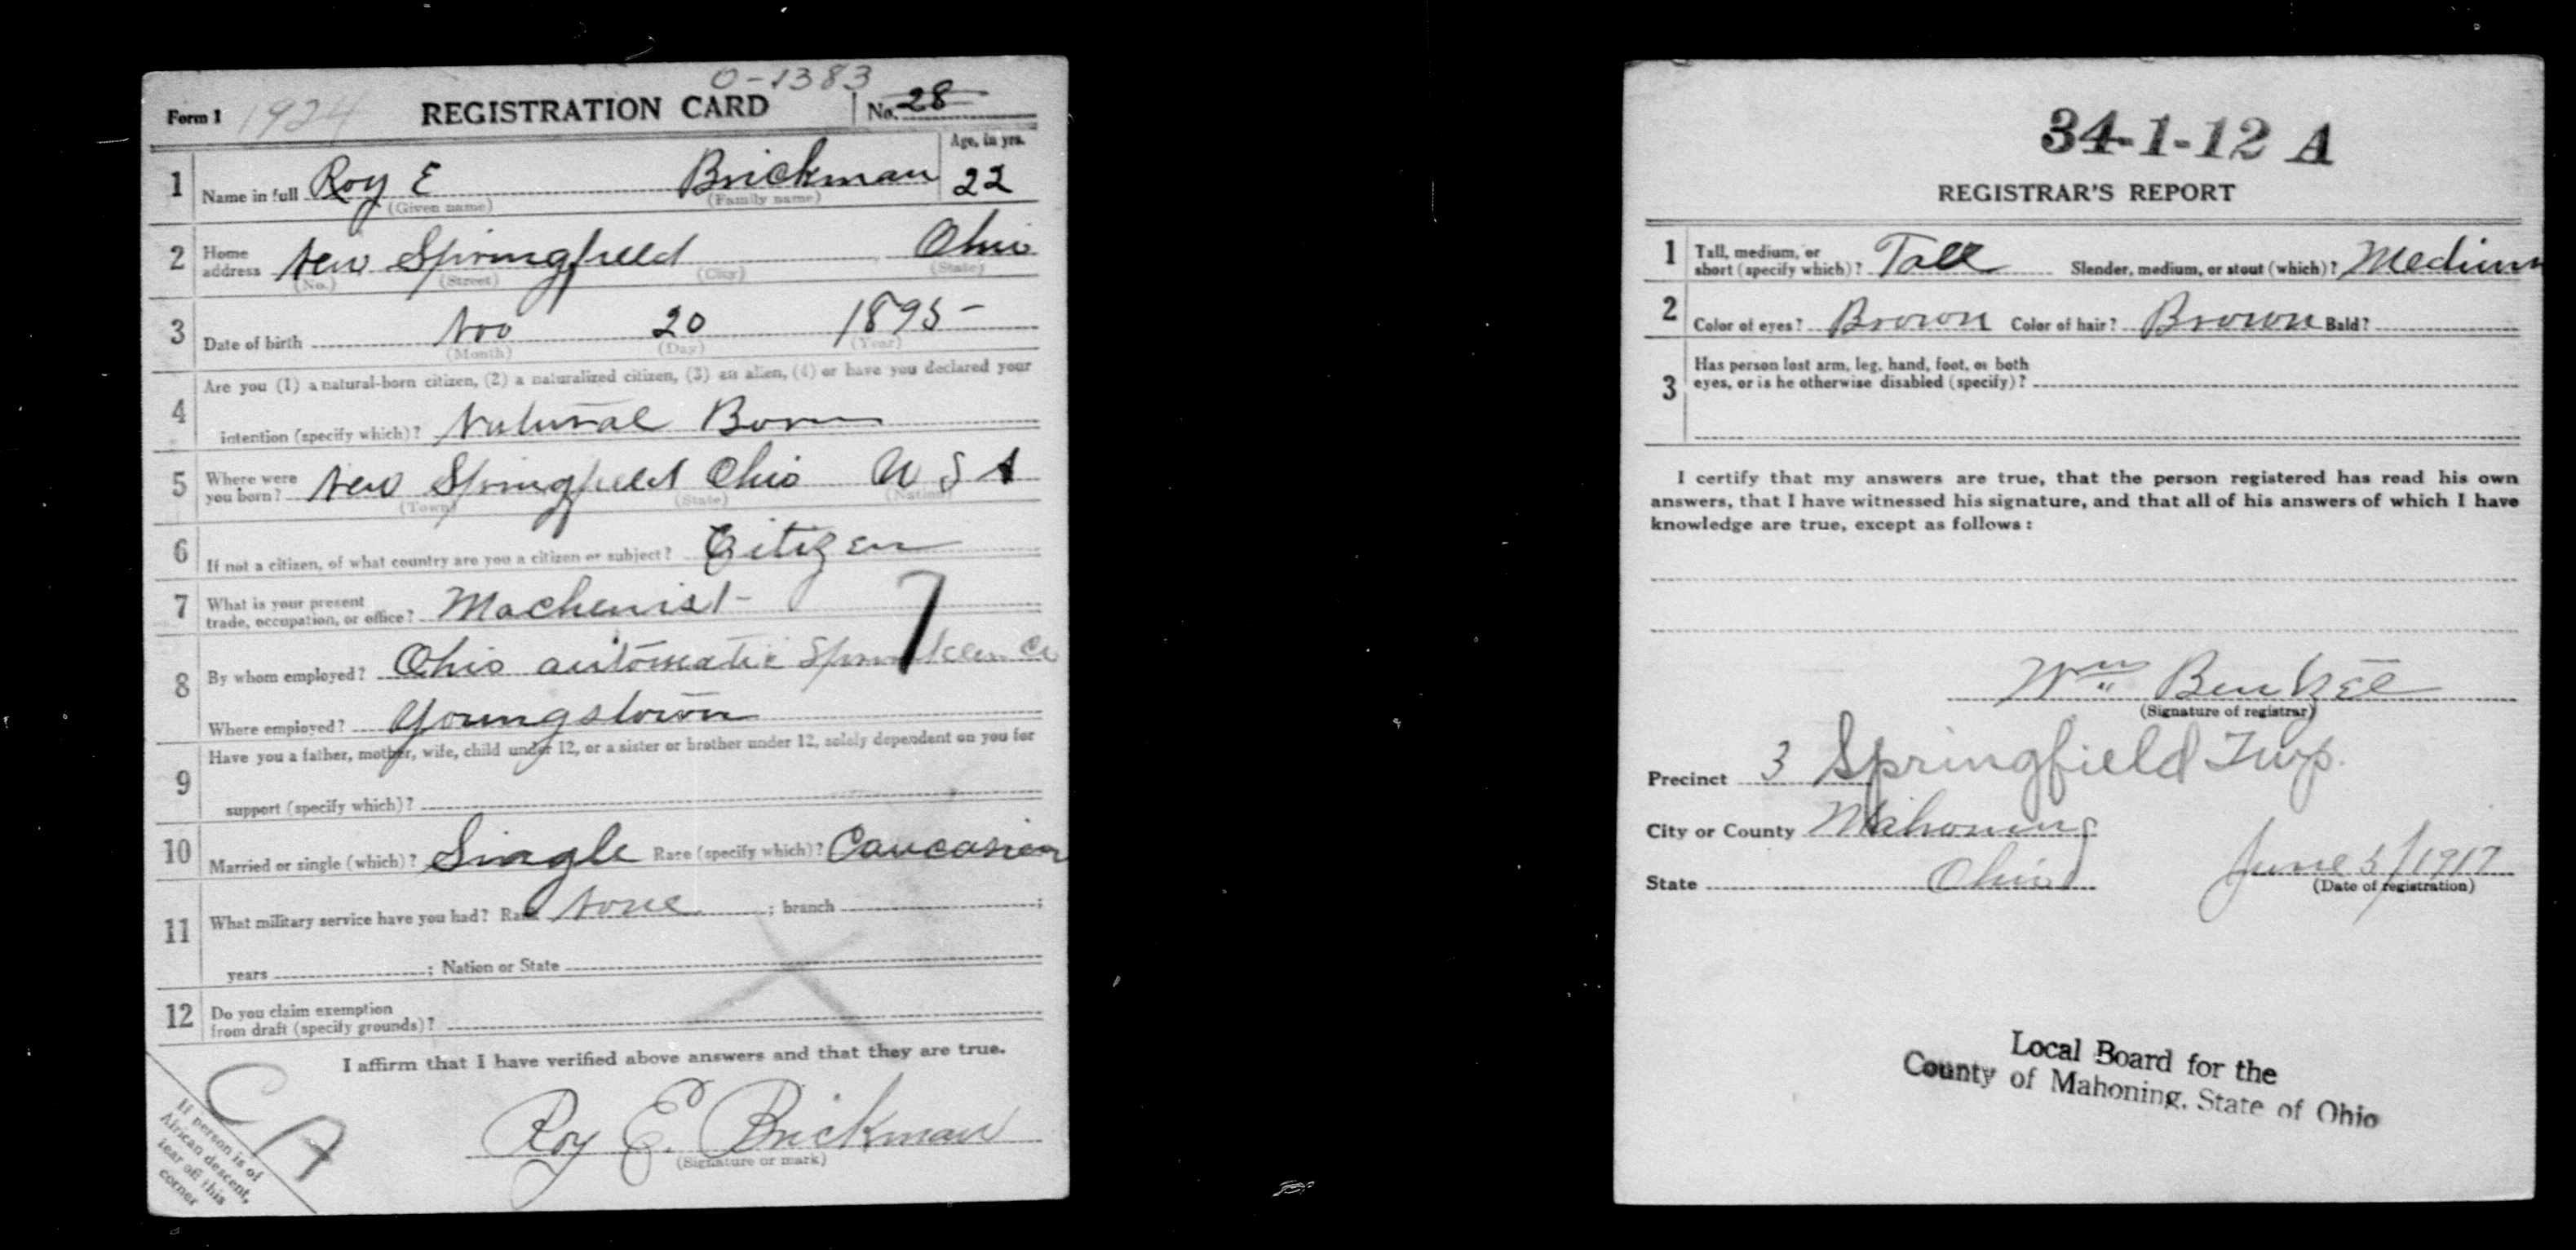 0-1383
Form 1 1924 REGISTRATION CARD No. 28
Age, in yrs.
1 Name in full Roy E Brickman 22
(Given name) (Family name)
2 Home address New Springfield Ohio
(No.) (Street) (City) (State)
3 Date of birth Nov 20 1895
(Month) (Day) (Year)
Are you (1) a natural-born citizen, (2) a naturalized citizen, (3) an alien, (4) or have you declared your
4 intention (specify which)? Natural Born
5 Where were you born? New Springfield Ohio U S A
(Town) (State) (Nation)
6 If not a citizen, of what country are you a citizen or subject? Citizen
7 What is your present trade, occupation, or office? Machenist
8 By whom employed? Ohio automatic Sprinkler Co
Where employed? Youngstown
Have you a father, mother, wife, child under 12, or a sister or brother under 12, solely dependent on you for
9 support (specify which)?
10 Married or single (which)? Single Race (specify which)? Caucasian
11 What military service have you had? Rank None ; branch ;
years ; Nation or State
12 Do you claim exemption
from draft (specify grounds)?
I affirm that I have verified above answers and that they are true.
Roy E. Brickman
(Signature or mark)
CA
If person is of
African descent,
tear off this
corner
34-1-12 A
REGISTRAR'S REPORT
1 Tall, medium, or
short (specify which)? Tall Slender, medium, or stout (which)? Medium
2 Color of eyes? Brown Color of hair? Brown Bald?
Has person lost arm, leg, hand, foot, or both
3 eyes, or is he otherwise disabled (specify)?
I certify that my answers are true, that the person registered has read his own
answers, that I have witnessed his signature, and that all of his answers of which I have
knowledge are true, except as follows:
Wm
(Signature of registrar)
Precinct 3 Springfield Twp.
City or County Mahoning
State Ohio June 5/1917
(Date of registration)
Local Board for the
County of Mahoning, State of Ohio